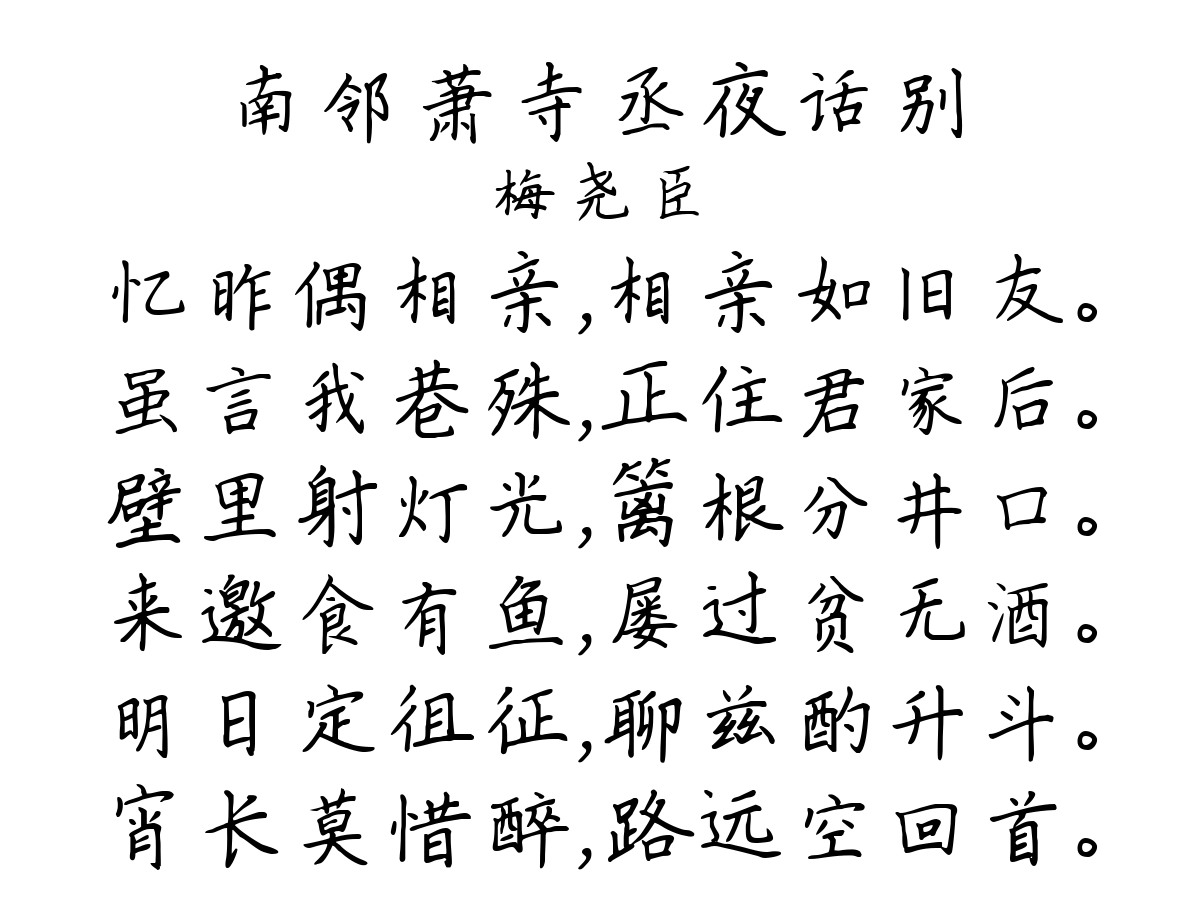 南邻萧寺丞夜话别
梅尧臣
忆昨偶相亲,相亲如旧友。
虽言我巷殊,正住君家后。
壁里射灯光,篱根分井口。
来邀食有鱼,屡过贫无酒。
明日定徂征,聊兹酌升斗。
宵长莫惜醉,路远空回首。